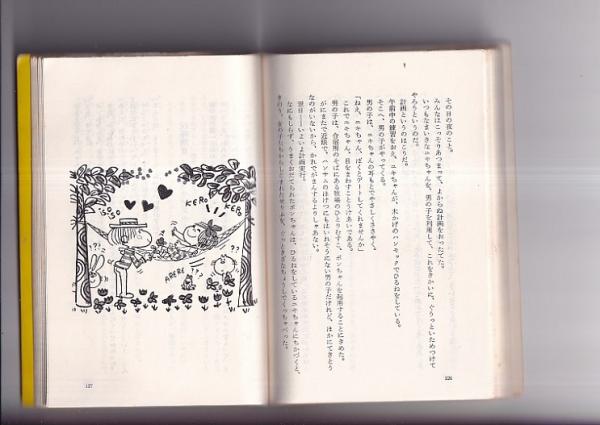 その日の夜のこと。
みんなはこっそりあつまって、よからぬ計画をおったてた。
いつもなまいきなユキちゃんを、男の子を利用して、これをきかいに、ぐうっといためつけて
やろうというのだ。
計画というのはこうだ。
午前中の練習をおえ、ユキちゃんが、木かげのハンモックでひるねをしている。
そこへ、男の子がやってくる。
男の子は、ユキちゃんの耳もとでやさしくささやく。
「ねえ、ユキちゃん、ぼくとデートしてくれませんか」
これでユキちゃん、目をまわすことうけあいである。
男の子は、合宿所のそばにある牧場のひとりむすこ、ポンちゃんを起用することにきめた。
がにまたで近眼で、ハンサムのほけつにもはいれそうにない男の子だけれど、ほかにてきとう
なのがいないから、かれでがまんするよりしゃあない。
翌日——いよいよ計画実行。
なにもしらず、うまくおだてられたポンちゃんは、ひるねをしているユキちゃんにちかづくと、
126
GOGO
KERO
KERO
??
??
ARERE
???
127